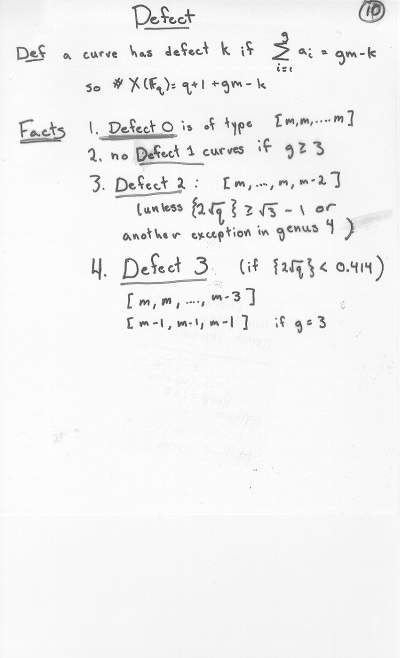 Defect
10
Def a curve has defect k if $\sum_{i=1}^{g} a_i = gm-k$
so # X(𝔽q) = q+1+gm-k
Facts 1. Defect 0 is of type [m,m,....m]
2. no Defect 1 curves if g ≥ 3
3. Defect 2 : [m,...,m,m-2]
(unless {2√q} ≥ √3 - 1 or
another exception in genus 4)
4. Defect 3 (if {2√q} < 0.414)
[m, m, ...., m-3]
[m-1, m-1, m-1] if g = 3